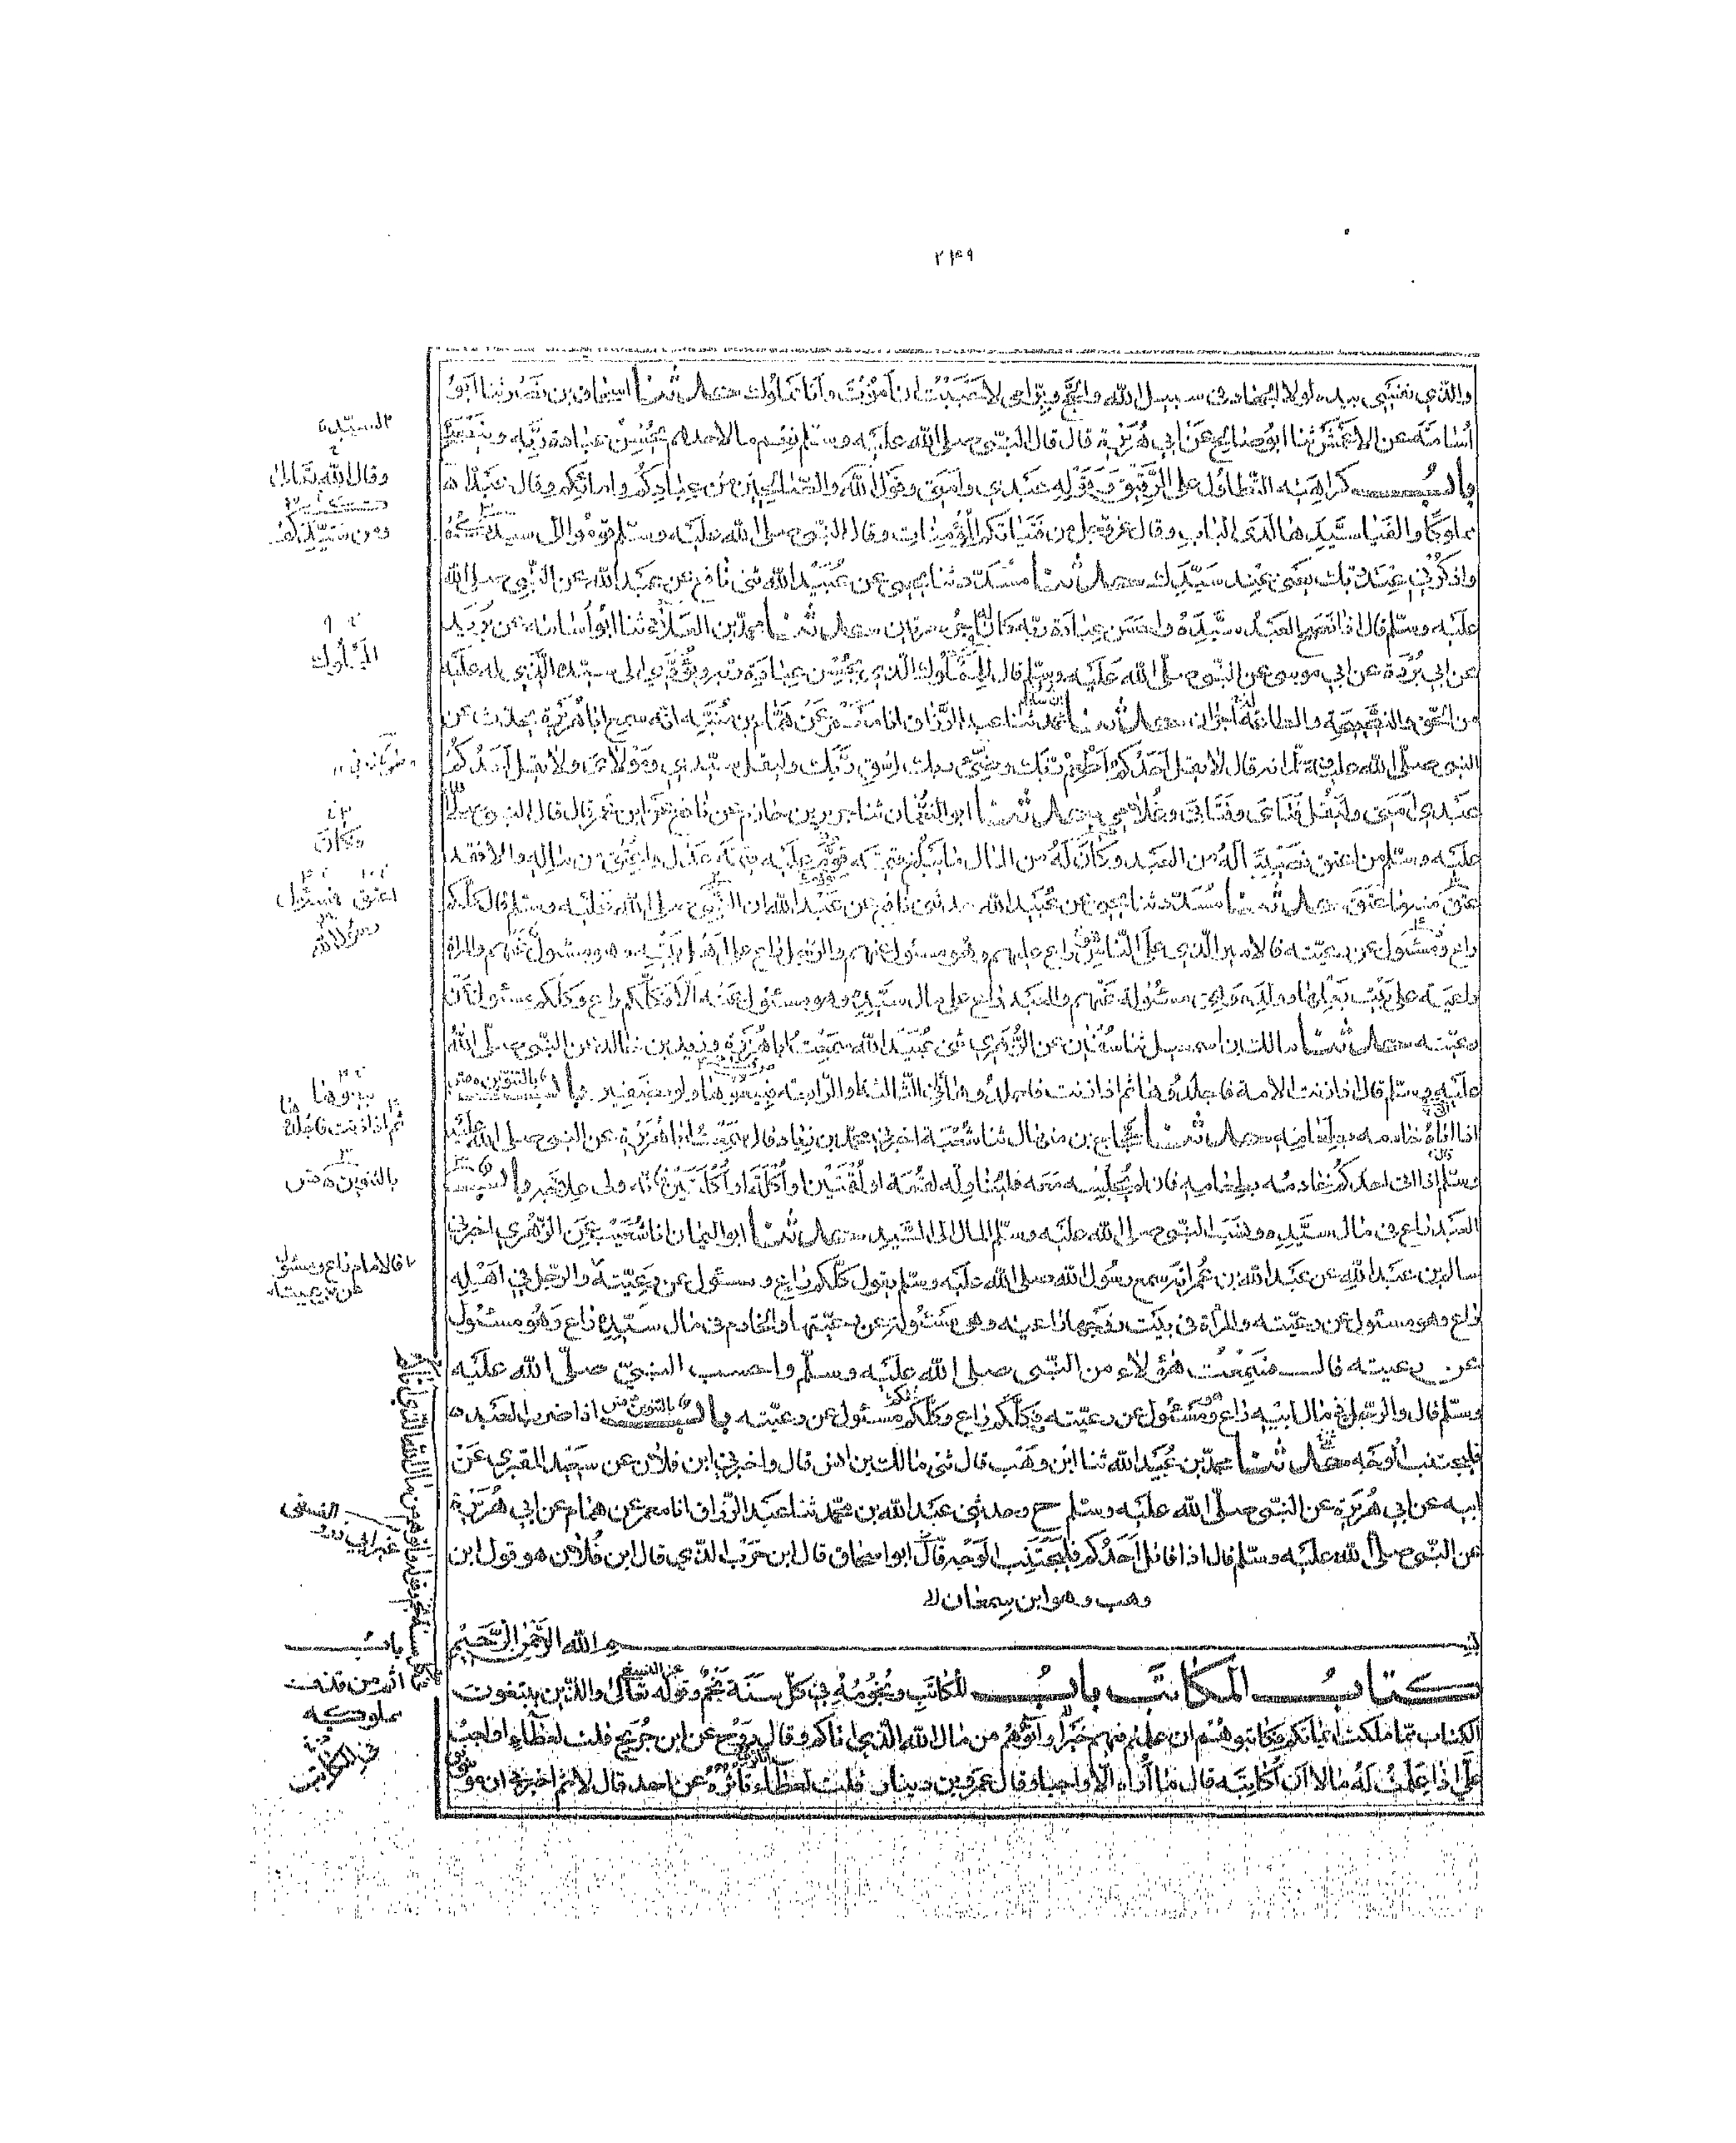 ٢٤٩
والذي نفسي بيده لولا الجهاد في سبيل الله والحج وبر امي لاحببت ان اموت وانا مملوك حدثنا اسحاق بن نصر ثنا ابو
اسامة عن الاعمش ثنا ابو صالح عن ابي هريرة قال قال النبي صلى الله عليه وسلم نعم ما لاحدهم يحسن عبادة ربه وينصح
باب كراهية التطاول على الرقيق وقوله عبدي وامتي وقول الله والصالحين من عبادكم وامائكم وقال عبدا
مملوكا والفيا سيدها لدى الباب وقال عز وجل من فتياتكم المؤمنات وقال النبي صلى الله عليه وسلم قوموا الى سيدكم
واذكرني عند ربك يعني عند سيدك حدثنا مسدد ثنا يحيى عن عبيد الله ثني نافع عن عبد الله عن النبي صلى الله
عليه وسلم قال اذا نصح العبد سيده واحسن عبادة ربه كان له اجره مرتين حدثنا محمد بن العلاء ثنا ابو اسامة عن بريد
عن ابي بردة عن ابي موسى عن النبي صلى الله عليه وسلم قال للمملوك الذي يحسن عبادة ربه ويؤدي الى سيده الذي له عليه
من الحق والنصيحة والطاعة اجران حدثنا محمد ثنا عبد الرزاق انا معمر عن همام بن منبه انه سمع ابا هريرة يحدث عن
النبي صلى الله عليه وسلم انه قال لا يقل احدكم اطعم ربك وضئ ربك اسق ربك وليقل سيدي ومولاي ولا يقل احدكم
عبدي امتي وليقل فتاي وفتاتي وغلامي حدثنا ابو النعمان ثنا جرير بن حازم عن نافع عن ابن عمر قال قال النبي صلى الله
عليه وسلم من اعتق نصيبا له من العبد وكان له من المال ما يبلغ قيمته قوم عليه قيمة عدل واعتق من ماله والا فقد
عتق منه ما عتق حدثنا مسدد ثنا يحيى عن عبيد الله حدثني نافع عن عبد الله ان النبي صلى الله عليه وسلم قال كلكم
راع ومسئول عن رعيته فالامير الذي على الناس راع عليهم وهو مسئول عنهم والرجل راع على اهل بيته وهو مسئول عنهم والمراة
راعية على بيت بعلها وولده وهي مسئولة عنهم والعبد راع على مال سيده وهو مسئول عنه الا فكلكم راع وكلكم مسئول عن
رعيته حدثنا مالك بن اسمعيل ثنا سفيان عن الزهري ثني عبيد الله سمعت ابا هريرة وزيد بن خالد عن النبي صلى الله
عليه وسلم قال اذا زنت الامة فاجلدوها ثم اذا زنت فاجلدوها في الثالثة والرابعة فبيعوها ولو بضفير باب بالتنوين
اذا اتاه خادمه بطعامه حدثنا حجاج بن منهال ثنا شعبة اخبرني محمد بن زياد قال سمعت ابا هريرة عن النبي صلى الله عليه
وسلم اذا اتى احدكم خادمه بطعامه فان لم يجلسه معه فليناوله لقمة او لقمتين او اكلة او اكلتين فانه ولي علاجه باب
العبد راع في مال سيده ونسب النبي صلى الله عليه وسلم المال الى السيد حدثنا ابو اليمان انا شعيب عن الزهري اخبرني
سالم بن عبد الله عن عبد الله بن عمر انه سمع رسول الله صلى الله عليه وسلم يقول كلكم راع ومسئول عن رعيته والرجل في اهله
راع وهو مسئول عن رعيته والمرأة في بيت زوجها راعية وهي مسئولة عن رعيتها والخادم في مال سيده راع وهو مسئول
عن رعيته قال فسمعت هؤلاء من النبي صلى الله عليه وسلم واحسب النبي صلى الله عليه
وسلم قال والرجل في مال ابيه راع ومسئول عن رعيته فكلكم راع وكلكم مسئول عن رعيته باب بالتنوين اذا ضرب العبد
فليجتنب الوجه حدثنا محمد بن عبيد الله ثنا ابن وهب قال ثني مالك بن انس قال واخبرني ابن فلان عن سعيد المقبري عن
ابيه عن ابي هريرة عن النبي صلى الله عليه وسلم ح وحدثني عبد الله بن محمد ثنا عبد الرزاق انا معمر عن همام عن ابي هريرة
عن النبي صلى الله عليه وسلم قال اذا قاتل احدكم فليجتنب الوجه قال ابو اسحاق قال ابن حرب الذي قال ابن فلان هو قول ابن
وهب وهو ابن سمعان
بسم الله الرحمن الرحيم
كتاب المكاتب باب المكاتب ونجومه في كل سنة نجم وقوله تعالى والذين يبتغون
الكتاب مما ملكت ايمانكم فكاتبوهم ان علمتم فيهم خيرا واتوهم من مال الله الذي اتاكم وقال روح عن ابن جريج قلت لعطاء اواجب
علي اذا علمت له مالا ان اكاتبه قال ما اراه الا واجبا وقال عمرو بن دينار قلت لعطاء تأثره عن احد قال لا ثم اخبرني ان موسى
السيد
وقال الله تعالى
ومن سيدكم
المملوك
وكان
اعتق فمسئول
رسول الله
بيعوها
ثم اذا زنت فاجلدوها
بالتنوين
فالامام راع ومسئول
عن رعيته
باب
اثم من قذف
مملوكه